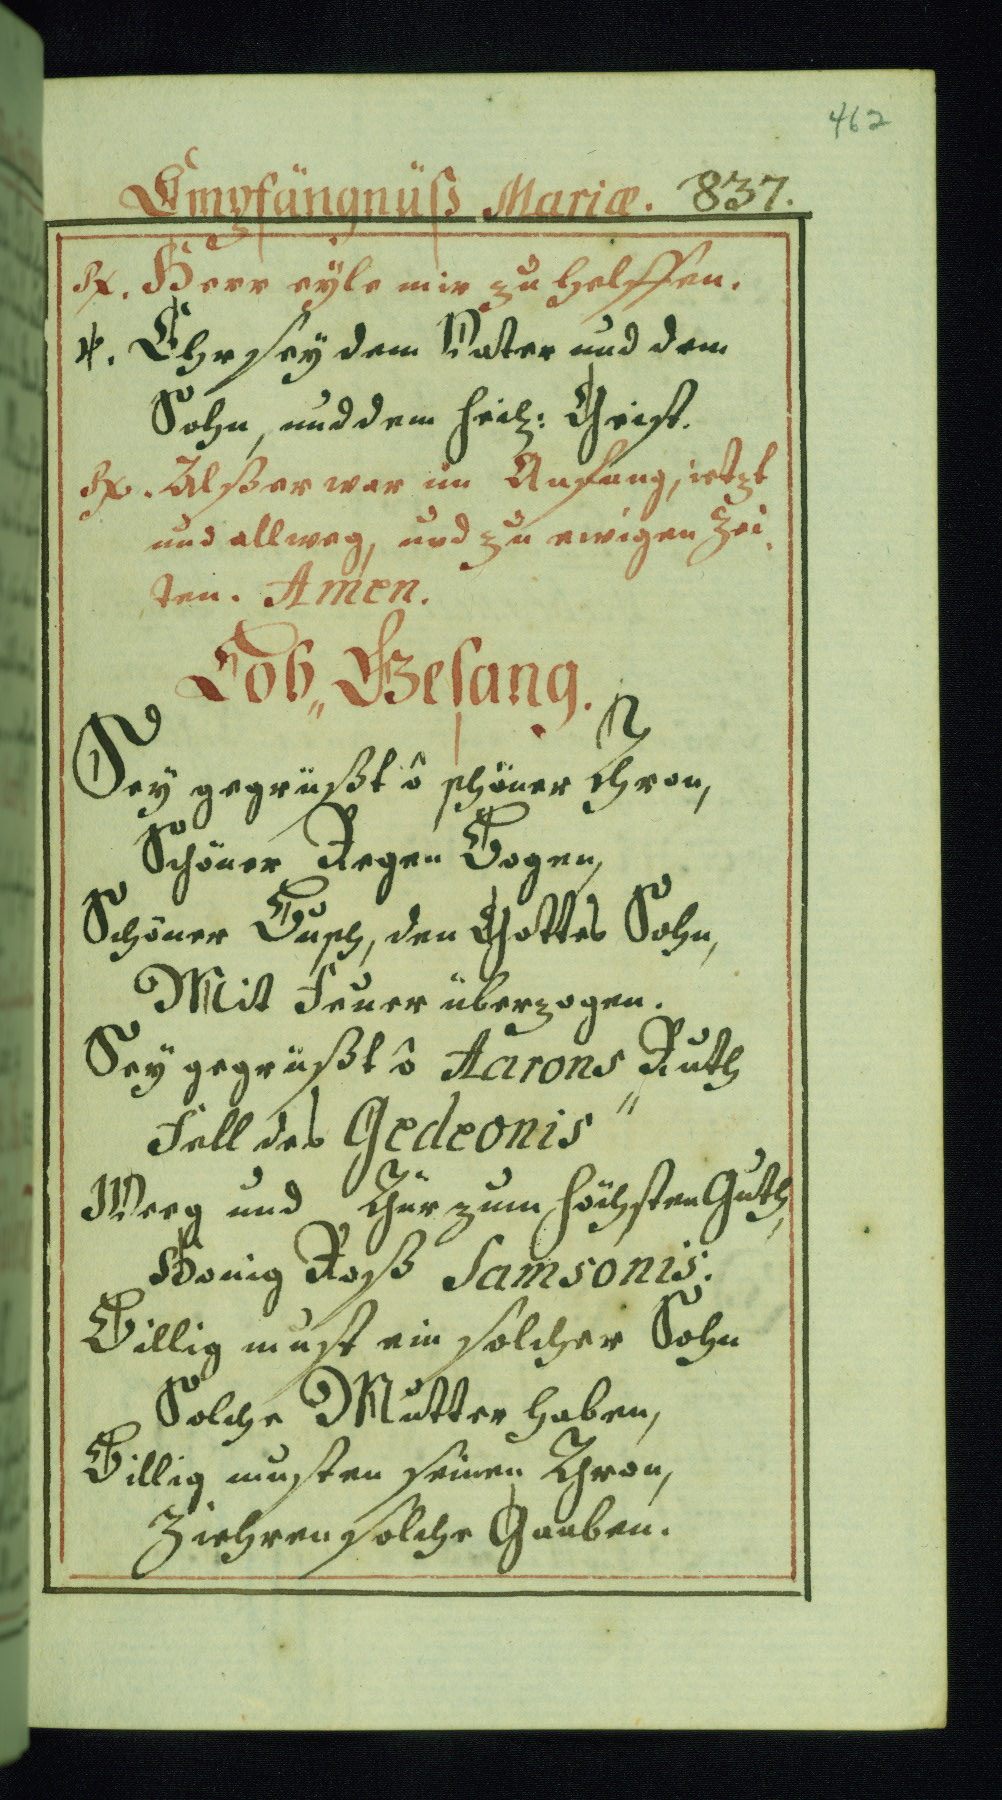 462
Empfängnüß Mariæ. 837.
℟. Herr eÿle mir zu helffen.
℣. Ehr seÿ dem Vater und dem
Sohn, und dem heil: Geist.
℟. Alß er war im Anfang, ietzt
und allweg, und zu ewigen Zei„
ten. Amen.
Lob„ Gesang.
Seÿ gegrüßt ô schöner Thron,
Schöner Regen Bogen,
Schöner Busch, den Gottes Sohn,
Mit Feuer überzogen.
Seÿ gegrüßt ô Aarons Ruth
Fell des Gedeonis"
Weeg und Thür zum höchsten Guth,
Honig Roß Samsonis.
Billig must ein solcher Sohn
Solche Mutter haben,
Billig musten seinen Thron,
Ziehren solche Gaaben.